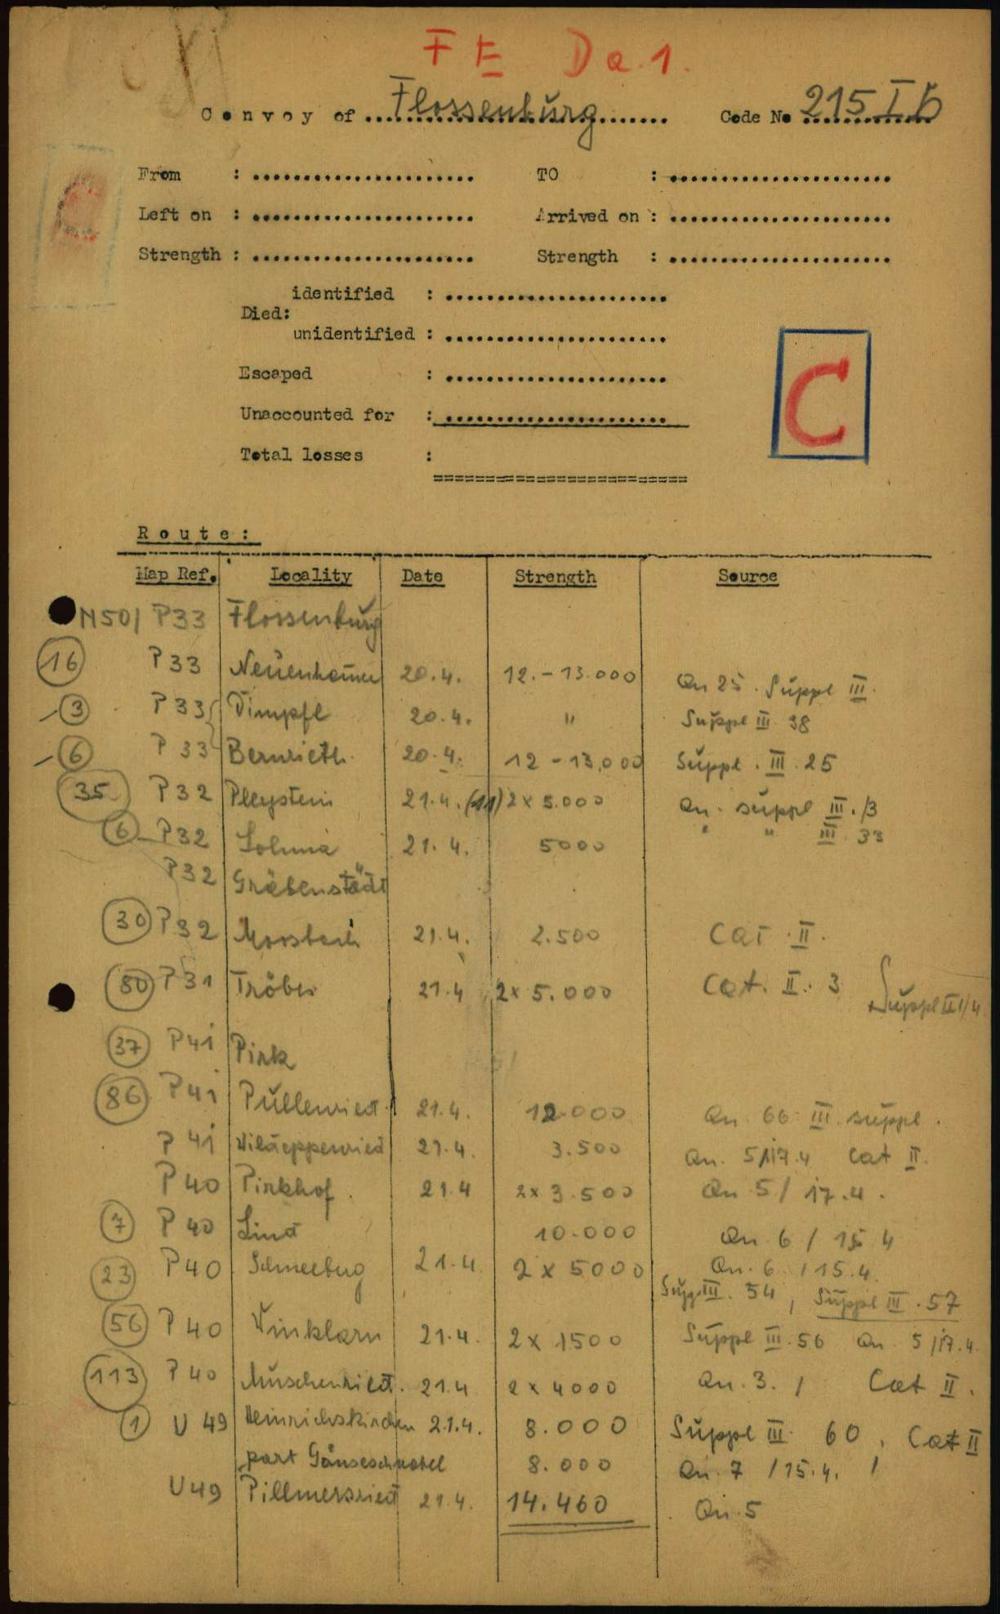 F E Da. 1.
Convoy of ... Flossenbürg ....... Code No 215 I b
From : ..................... TO : .....................
Left on : ..................... Arrived on : .....................
Strength : ..................... Strength : .....................
identified : .....................
Died:
unidentified : .....................
Escaped : .....................
Unaccounted for : .....................
Total losses :
=========================
C
Route:
Map Ref. Locality Date Strength Source
N50/ P33 Flossenbürg
16 P33 Neuenhammer 20.4. 12.-13.000 Qn 25. Suppl III.
3 P33 Dimpfl 20.4. " Suppl III 38
6 P33 Bernrieth 20.4. 12-13,000 Suppl. III. 25
35 P32 Pleystein 21.4. (11) 2 x 5.000 Qn. suppl III. /3
6 P32 Lohma 21.4. 5000 " " III 33
P32 Gräbenstädt
30 P32 Moosbach 21.4. 2.500 Cat. II.
80 P31 Tröbes 21.4 2x 5.000 Cat. II. 3 Suppl III/4
37 P41 Pirk
86 P41 Pullenried 21.4. 12.000 Qn. 66 III suppl.
P41 Wildeppenried 21.4. 3.500 Qn. 5/17.4 Cat II.
P40 Pirkhof. 21.4 2x 3.500 Qn 5/ 17.4.
7 P40 Lind 10.000 Qn. 6 / 15 4
23 P40 Schneeberg 21.4 2 x 5000 Qn. 6 / 15.4.
Suppl III. 54, Suppl III. 57
56 P40 Winklarn 21.4. 2 x 1500 Suppl III. 56 Qn. 5/17.4.
113 P40 Muschenried. 21.4 2 x 4000 Qn. 3. / Cat II.
1 U 49 Heinrichskirchen 21.4. 8.000 Suppl III 60, Cat II
part Gänseschnabel 8.000 Qn. 7 /15.4. /
U49 Pillmersried 21.4. 14.460 Qn. 5